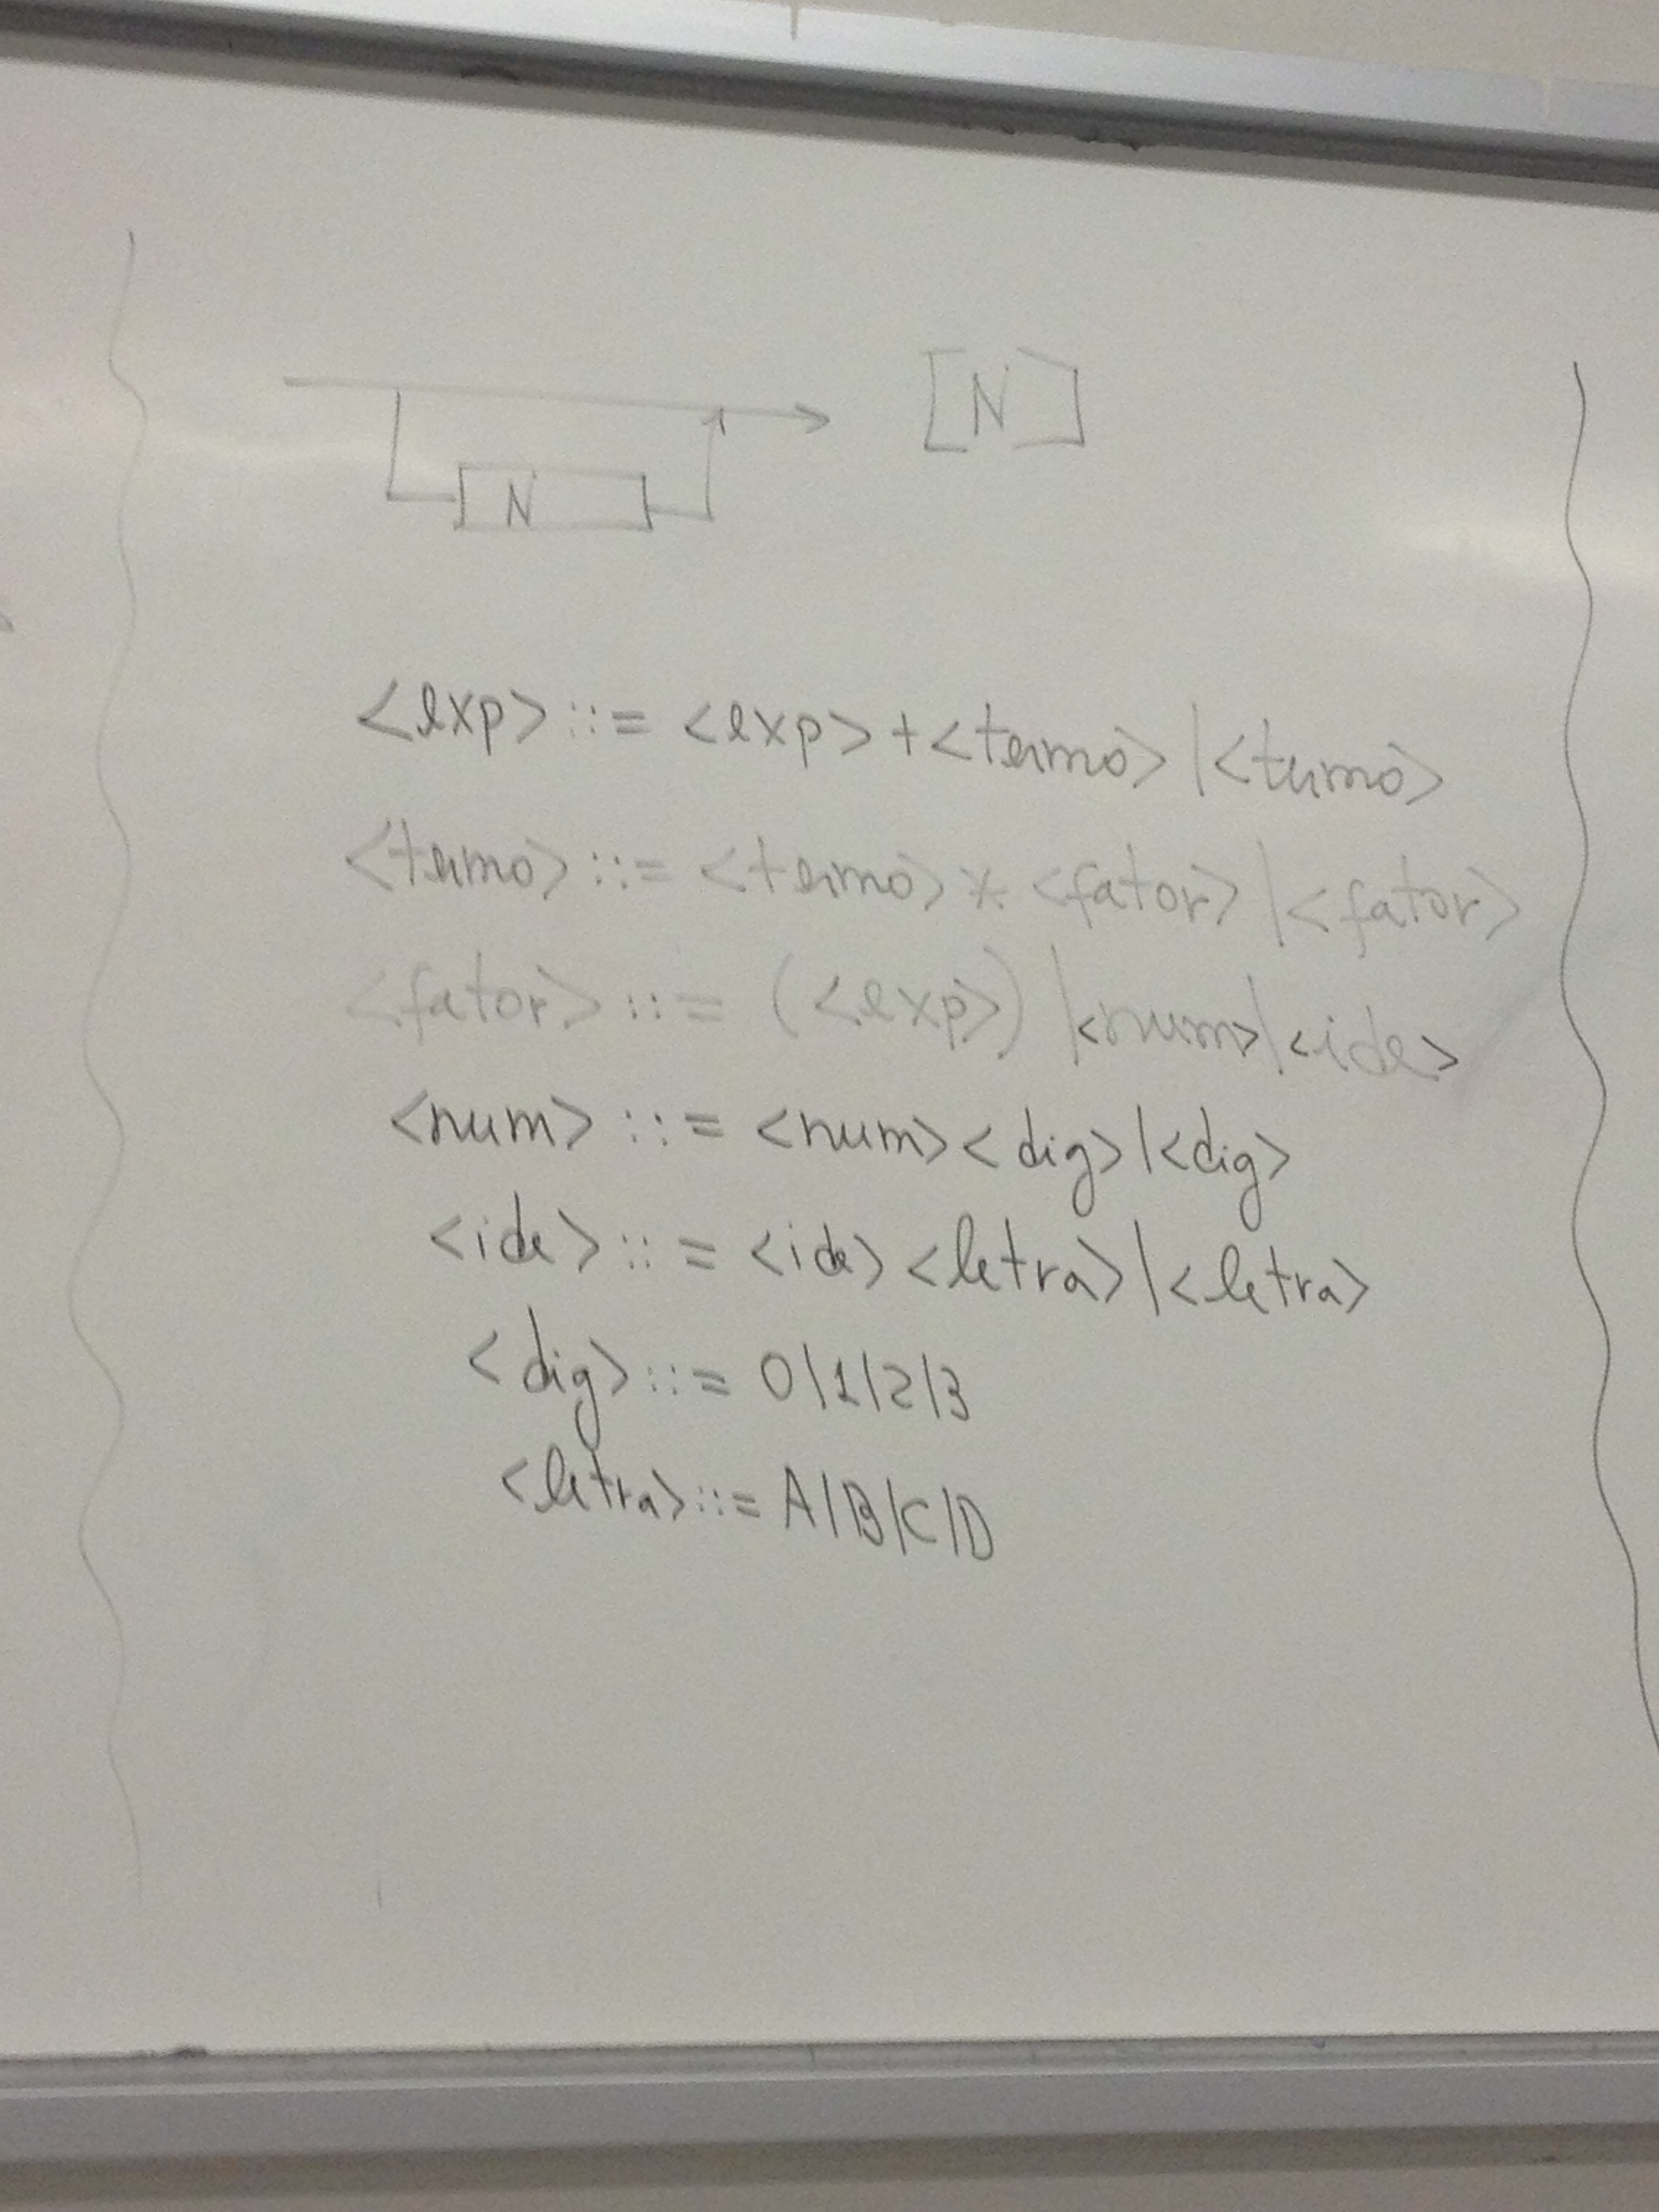 [N]
N
<exp> ::= <exp> + <termo> | <termo>
<termo> ::= <termo> * <fator> | <fator>
<fator> ::= (<exp>) | <num> | <ide>
<num> ::= <num> <dig> | <dig>
<ide> ::= <ide> <letra> | <letra>
<dig> ::= 0|1|2|3
<letra> ::= A|B|C|D